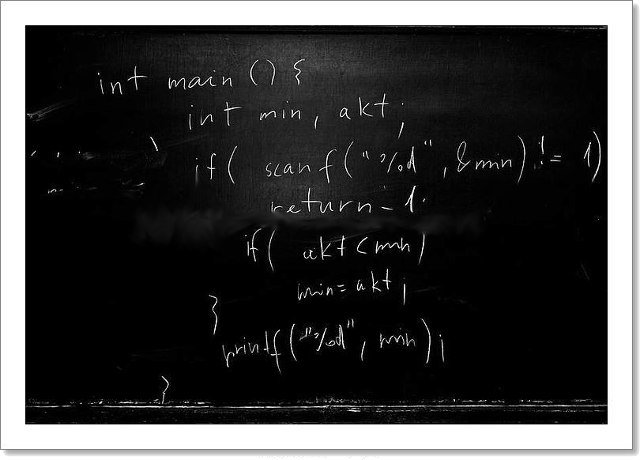 int main () {
int min, akt;
if( scanf("%d", &min) != 1)
return -1.
if( akt < min)
min = akt;
}
printf("%d", min);
}